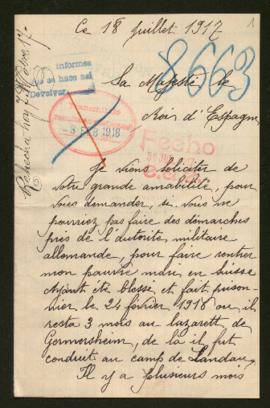 Ce 18 Juillet, 1917
8663
1
informes
que se hace así
Devolver
Sa Majesté le
Roi d'Espagne
Fecho
Je viens soliciter de
votre grande amabilité, pour
vous demander, si vous ne
pourriez pas faire des démarches
près de l'autorité militaire
allemande, pour faire rentrer
mon pauvre mari, en Suisse
Ayant été blessé et fait prison-
nier le 24 février 1916 ou, il
resta 3 mois au lazarett de
Germersheim, de là il fut
conduit au camp de Landau,
Il y a plusieurs mois